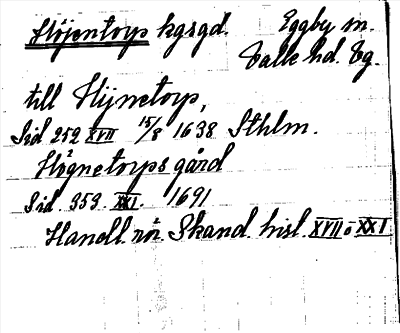 Höjentorp kgsgd. Eggby sn.
Valle hd. Vg.
till Hijnetorp,
Sid 252 XVII 15/8 1638 Sthlm.
Högnetorps gård
Sid. 353. XXI. 1691
Handl. rör. Skand. hist. XVII o XXI